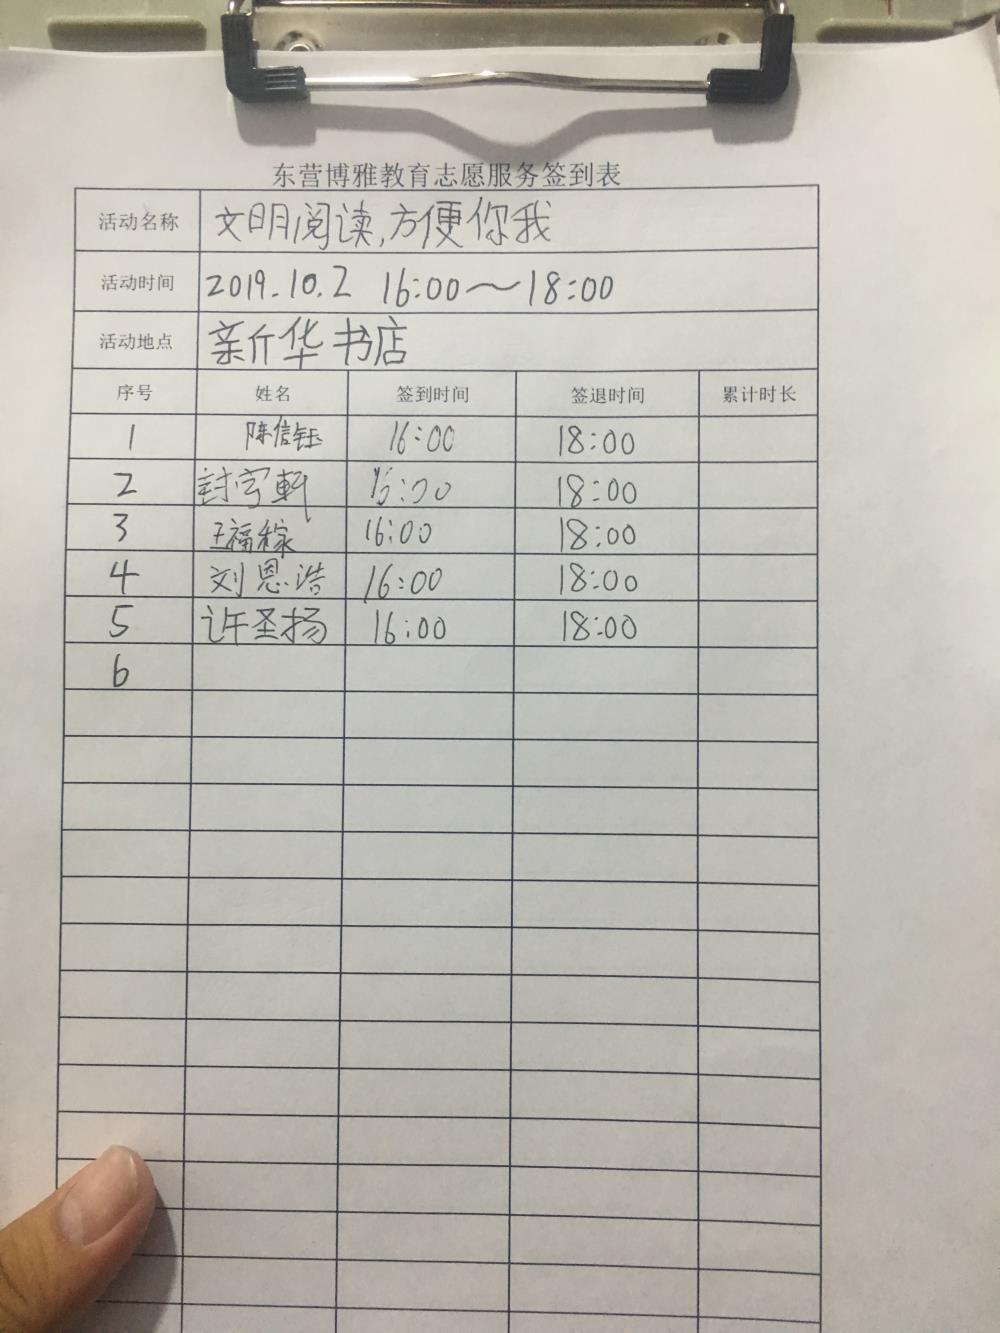 东营博雅教育志愿服务签到表
活动名称 文明阅读,方便你我
活动时间 2019.10.2 16:00～18:00
活动地点 新华书店
序号 姓名 签到时间 签退时间 累计时长
1 陈信钰 16:00 18:00
2 封宇軒 16:00 18:00
3 王福稼 16:00 18:00
4 刘恩浩 16:00 18:00
5 许圣扬 16:00 18:00
6